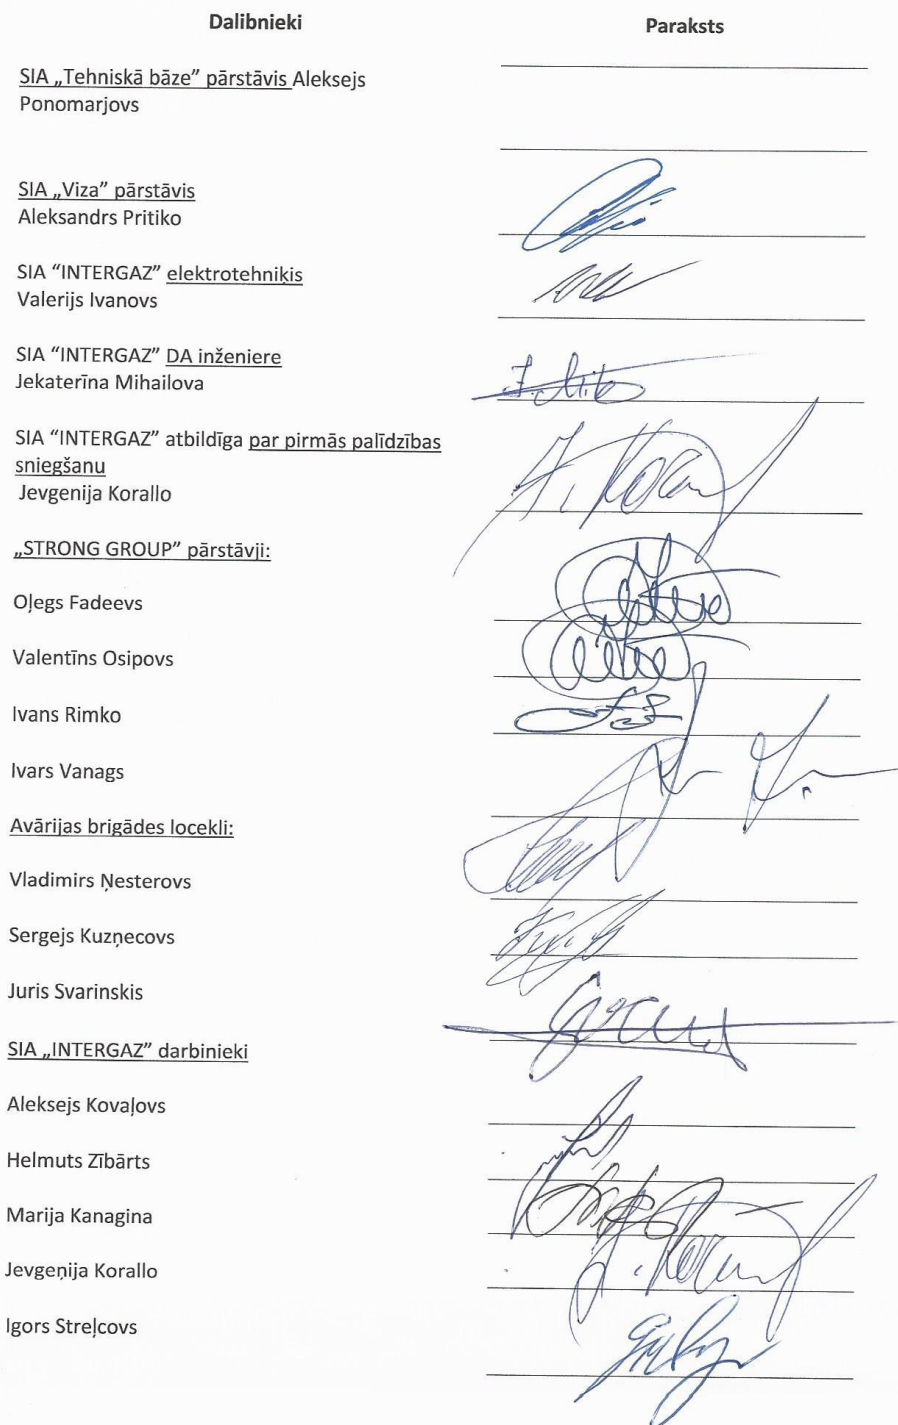 Dalibnieki
Paraksts
SIA „Tehniskā bāze” pārstāvis Aleksejs
Ponomarjovs
SIA „Viza” pārstāvis
Aleksandrs Pritiko
SIA “INTERGAZ” elektrotehniķis
Valerijs Ivanovs
SIA “INTERGAZ” DA inženiere
Jekaterīna Mihailova
SIA “INTERGAZ” atbildīga par pirmās palīdzības
sniegšanu
Jevgenija Korallo
„STRONG GROUP” pārstāvji:
Oļegs Fadeevs
Valentīns Osipovs
Ivans Rimko
Ivars Vanags
Avārijas brigādes locekli:
Vladimirs Ņesterovs
Sergejs Kuzņecovs
Juris Svarinskis
SIA „INTERGAZ” darbinieki
Aleksejs Kovaļovs
Helmuts Zībārts
Marija Kanagina
Jevgeņija Korallo
Igors Streļcovs